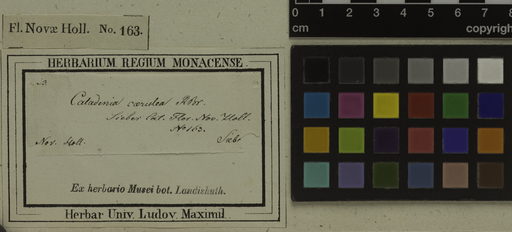 Fl. Novæ Holl. No. 163.
HERBARIUM REGIUM MONACENSE.
Caladenia cœrulea RBr.
Sieber Cat. Flor. Nov. Holl.
No 163.
Nov. Holl. Siebr
Ex herbario Musei bot. Landishuth.
Herbar Univ. Ludov. Maximil.
0 1 2 3 4 5 6 7 8
cm copyright